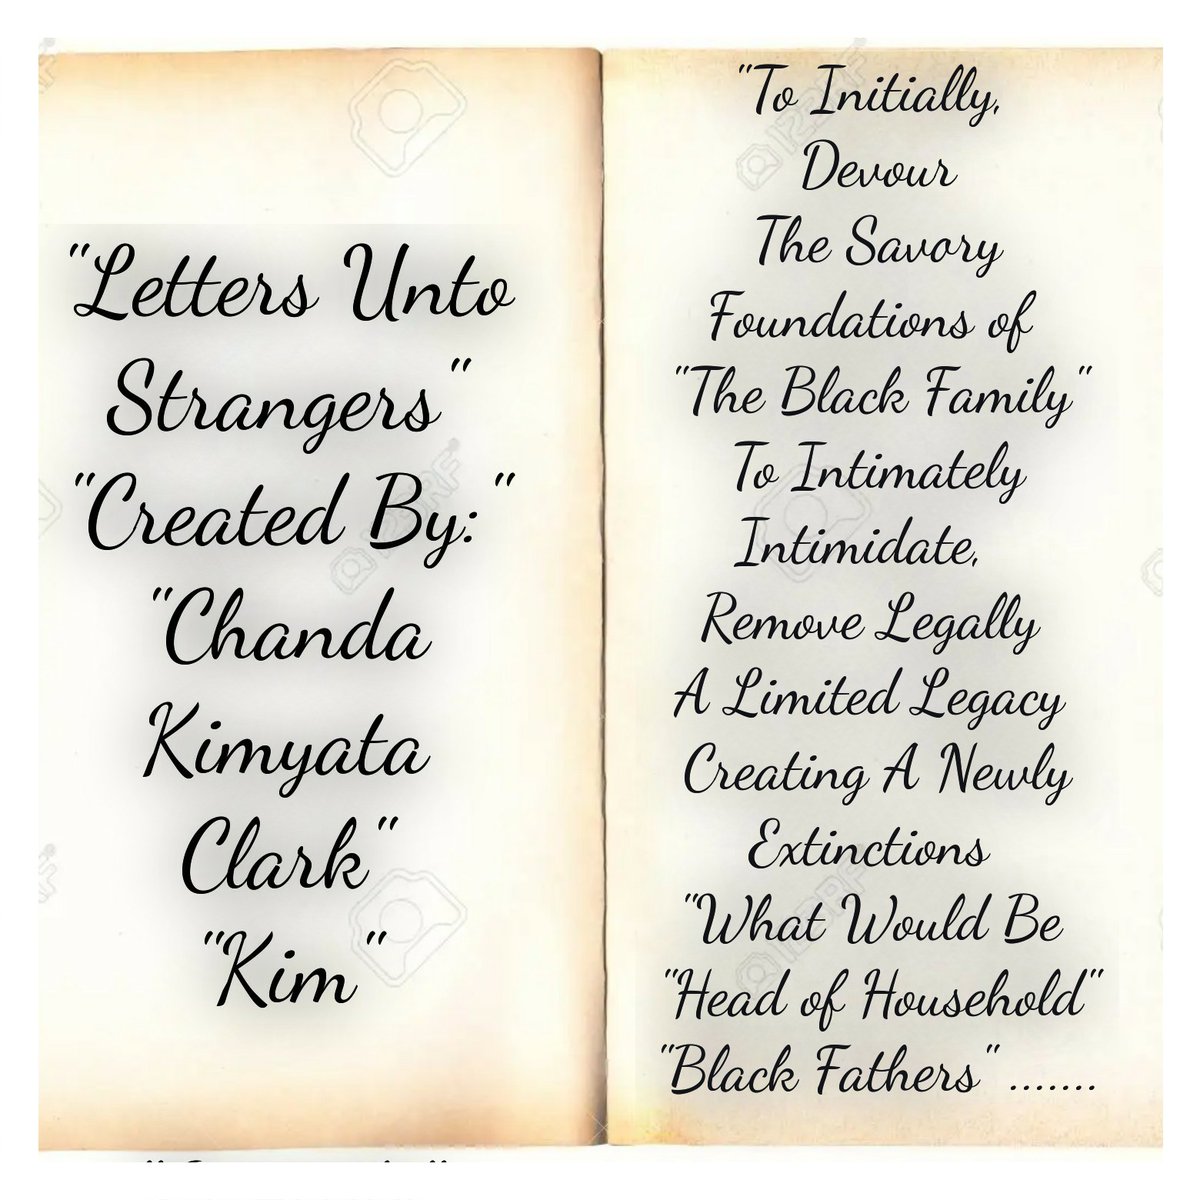 "Letters Unto
Strangers"
"Created By:"
"Chanda
Kimyata
Clark"
"Kim"
"To Initially,
Devour
The Savory
Foundations of
"The Black Family"
To Intimately
Intimidate,
Remove Legally
A Limited Legacy
Creating A Newly
Extinctions
"What Would Be
"Head of Household"
"Black Fathers".......
123RF
123RF
123RF